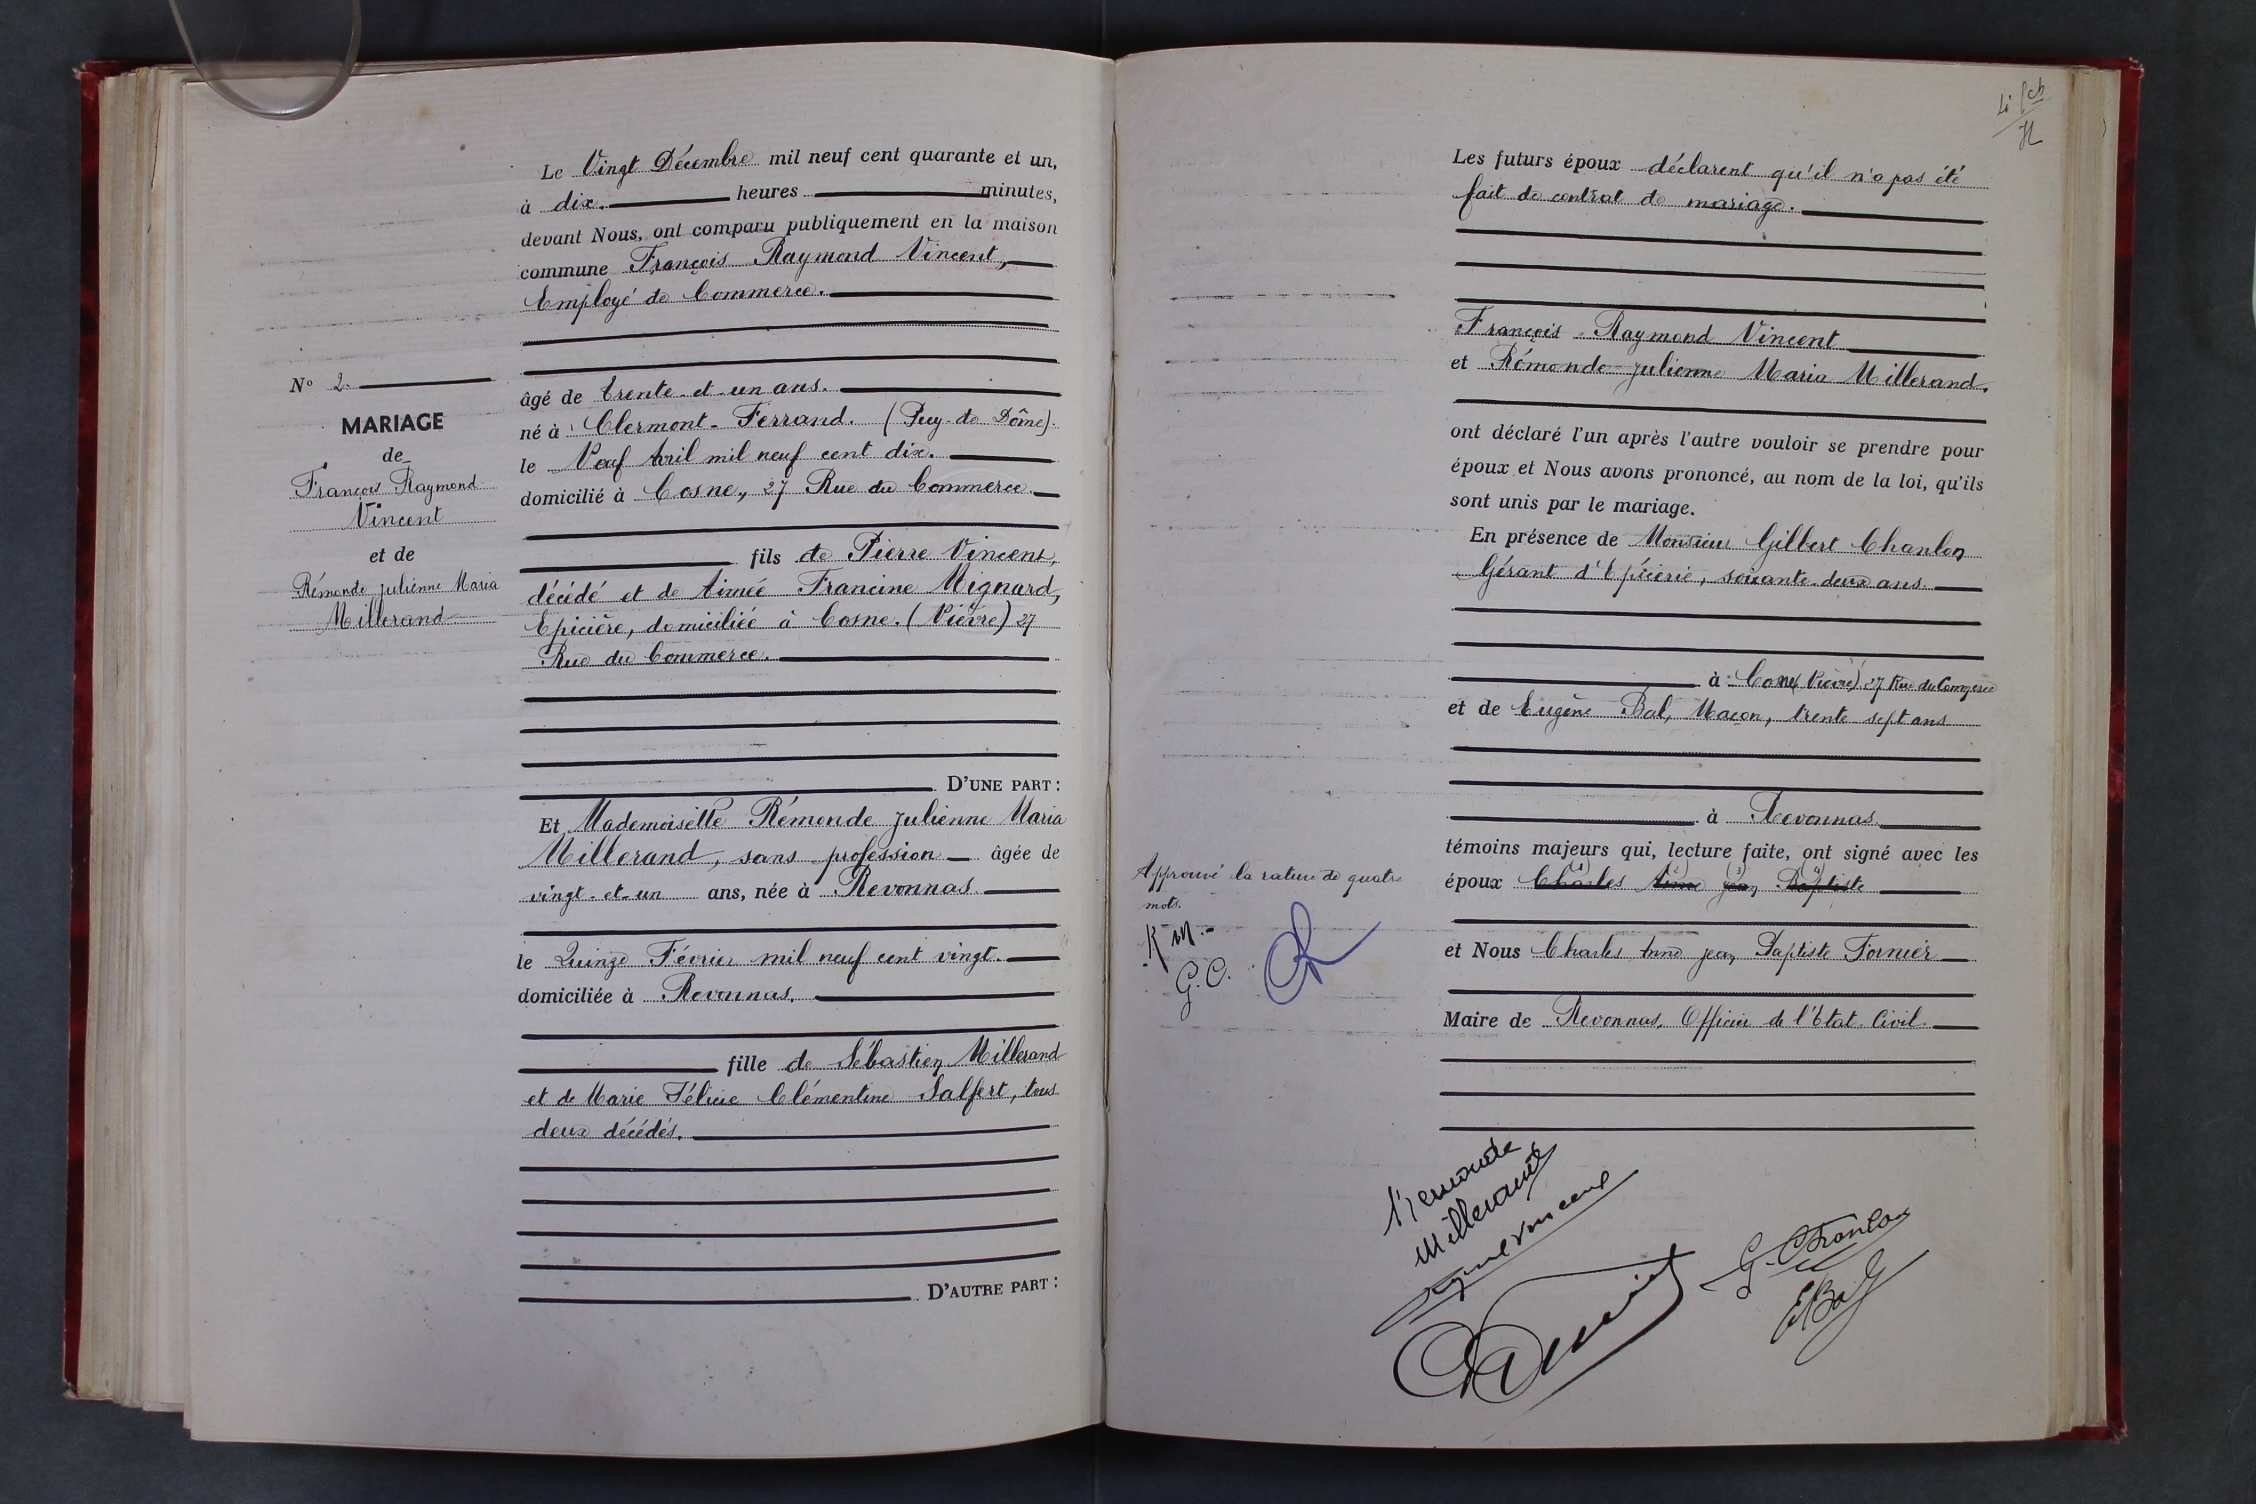 Le Vingt Décembre mil neuf cent quarante et un,
à dix. heures minutes,
devant Nous, ont comparu publiquement en la maison
commune François Raymond Vincent,
Employé de Commerce.
âgé de trente-et-un ans.
né à Clermont-Ferrand. (Puy-de Dôme).
le Neuf Avril mil neuf cent dix.
domicilié à Cosne, 27 Rue du Commerce.
fils de Pierre Vincent,
décédé et de Aimée Francine Mignard,
Epicière, domiciliée à Cosne. (Nièvre) 27
Rue du Commerce.
D'UNE PART :
Et Mademoiselle Rémonde Julienne Maria
Millerand, sans profession âgée de
vingt-et-un ans, née à Revonnas
le Quinze Février mil neuf cent vingt.
domiciliée à Revonnas.
fille de Sébastien Millerand
et de Marie Félicie Clémentine Salfert, tous
deux décédés.
D'AUTRE PART :
N° 2.
MARIAGE
de
François Raymond
Vincent
et de
Rémonde Julienne Maria
Millerand
Les futurs époux déclarent qu'il n'a pas été
fait de contrat de mariage.
François Raymond Vincent
et Rémonde Julienne Maria Millerand.
ont déclaré l'un après l'autre vouloir se prendre pour
époux et Nous avons prononcé, au nom de la loi, qu'ils
sont unis par le mariage.
En présence de Monsieur Gilbert Chanlon
Gérant d'Epicerie, soixante-deux ans
à Cosne (Nièvre) 27 Rue du Commerce
et de Eugène Bal, Maçon, trente sept ans
à Revonnas.
témoins majeurs qui, lecture faite, ont signé avec les
époux Charles Aimé Jean Baptiste
et Nous Charles Aimé Jean Baptiste Fornier
Maire de Revonnas, Officier de l'Etat Civil.
Approuvé la rature de quatre
mots.
R M.
G. C.
Remonde
Millerand
G. Chanlon
E Bal